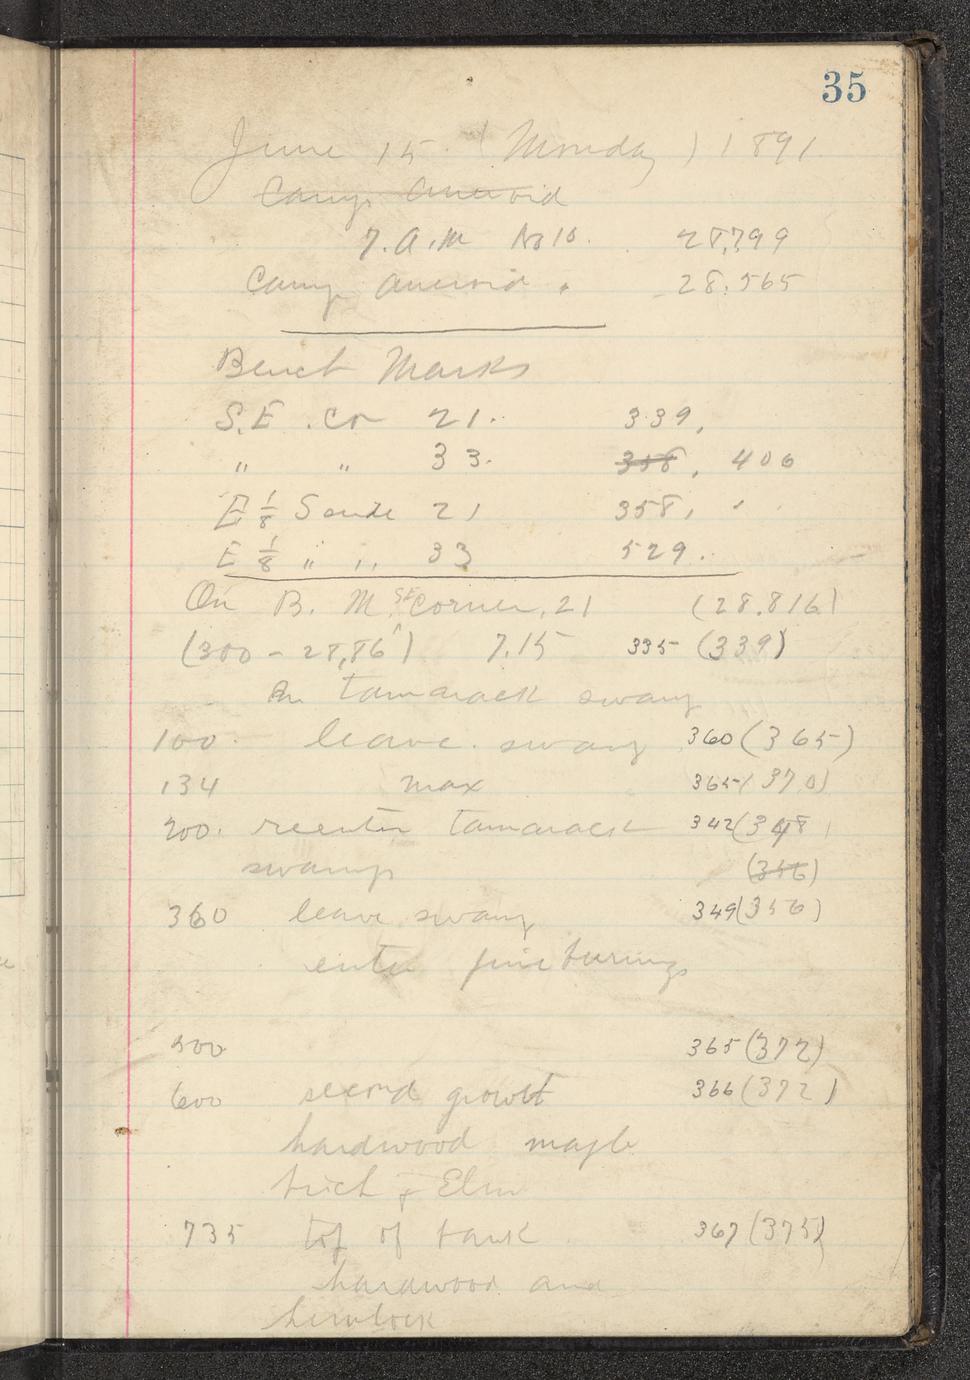 35
June 15. (Monday) 1891
Camp Aneroid
7. A.M No 10. 28,799
Camp Aneroid. 28.565
Bench Marks
S.E. Cor 21. 339,
" " 33. 358, 406
E 1/8 S 21 358,
E 1/8 " " 33 529.
On B. M. SE Corner, 21 (28.816)
(300 - 28,86) 7.15 335 (339)
In tamarack swamp
100. leave swamp 360 (365)
134 max 365 (370)
200. reenter tamarack 342 (348)
swamp (356)
360 leave swamp 349 (356)
enter pine burnings
500 365 (372)
600 second growth 366 (372)
hardwood maple
birch & Elm
735 top of bank 367 (375)
hardwood and
hemlock